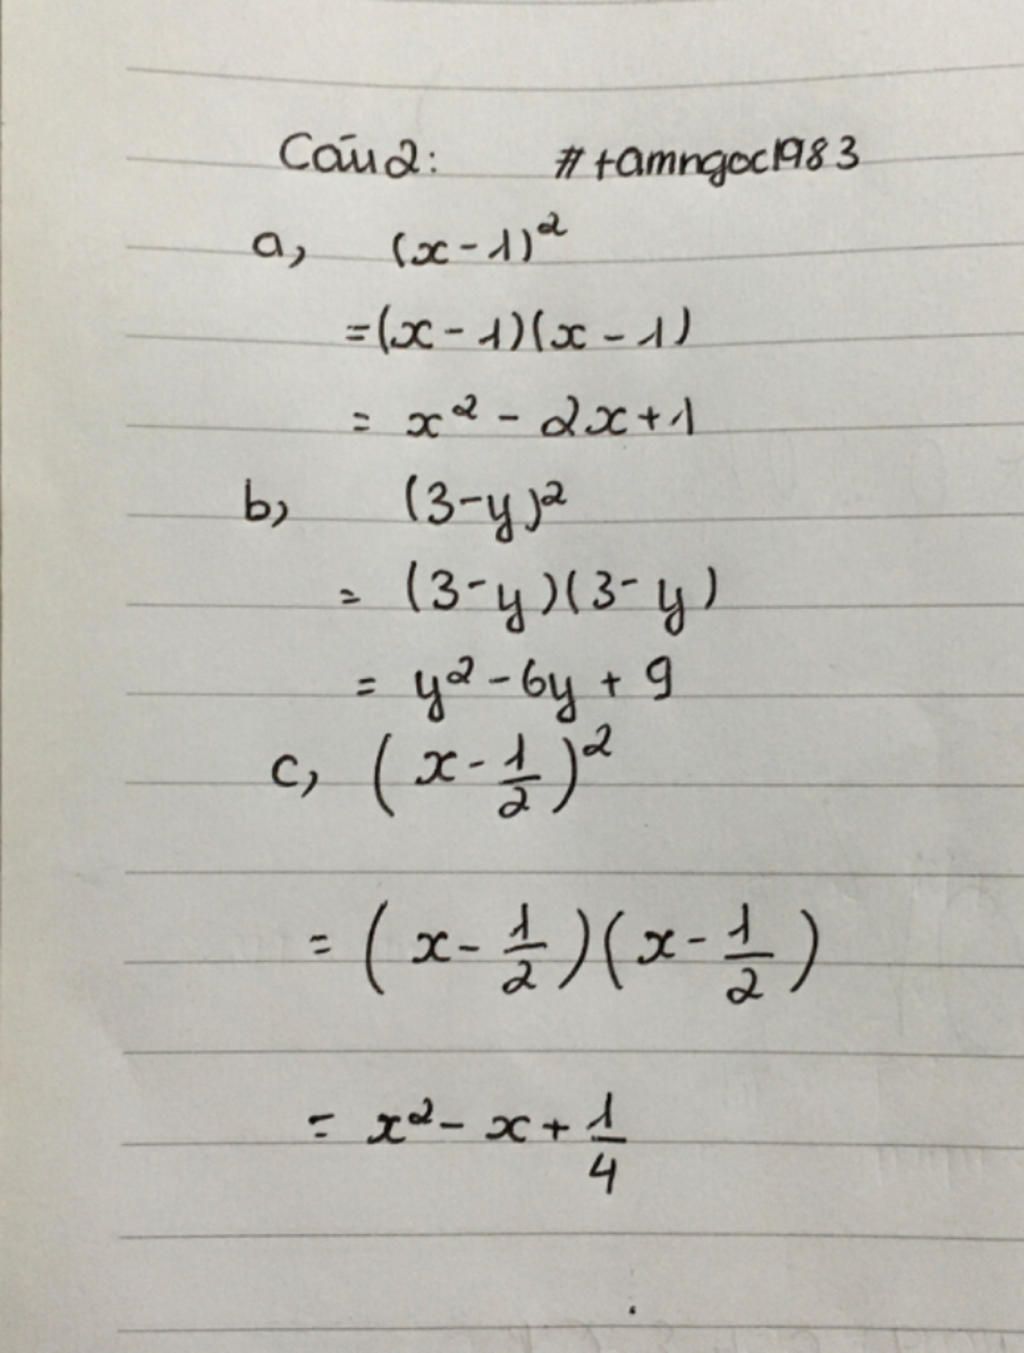 Câu 2: #tamngoc1983
a, (x - 1)²
= (x - 1)(x - 1)
= x² - 2x + 1
b, (3 - y)²
= (3 - y)(3 - y)
= y² - 6y + 9
c, (x - 1/2)²
= (x - 1/2)(x - 1/2)
= x² - x + 1/4